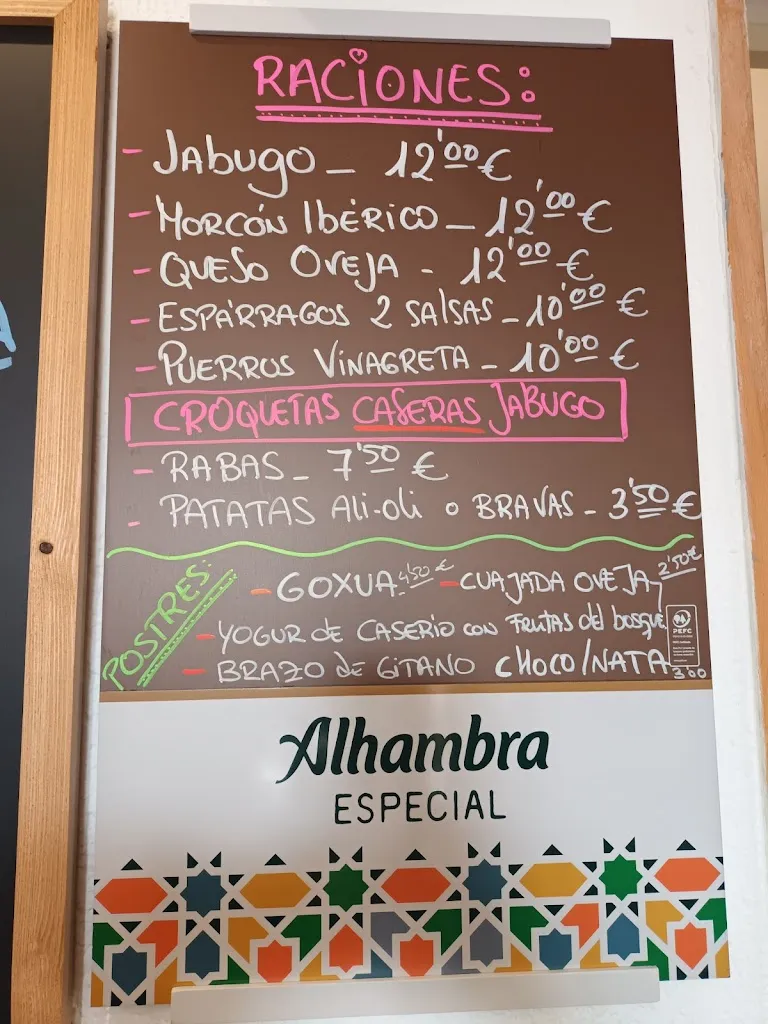 RACIONES:
- JABUGO - 12'00 €
- MORCÓN IBÉRICO - 12'00 €
- QUESO OVEJA - 12'00 €
- ESPÁRRAGOS 2 SALSAS - 10'00 €
- PUERROS VINAGRETA - 10'00 €
CROQUETAS CASERAS JABUGO
- RABAS - 7'50 €
- PATATAS ALI-OLI o BRAVAS - 3'50 €
POSTRES:
- GOXUA 4'50 € - CUAJADA OVEJA 2'50 €
- YOGUR de CASERIO con FRUTAS del bosque
- BRAZO de GITANO CHOCO/NATA 3'00
PEFC
Alhambra
ESPECIAL